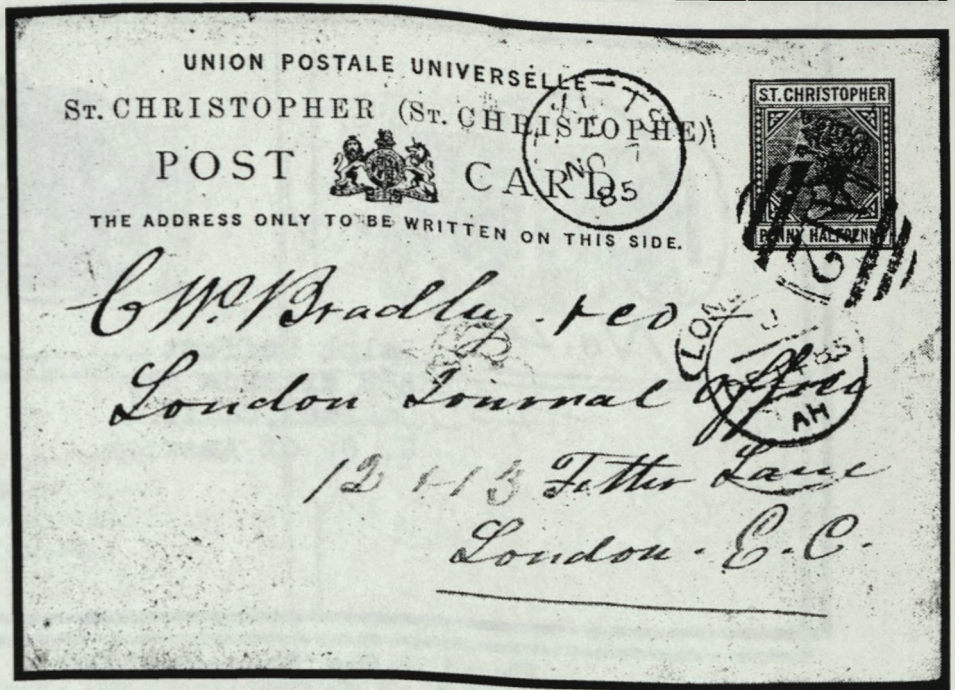 UNION POSTALE UNIVERSELLE
ST. CHRISTOPHER (ST. CHRISTOPHE)
POST CARD
THE ADDRESS ONLY TO BE WRITTEN ON THIS SIDE.
ST. CHRISTOPHER
PENNY HALFPENNY
85
C Wm. Bradley & Co
London Journal Office
12 & 13 Fetter Lane
London. E.C.
LON
85
AH